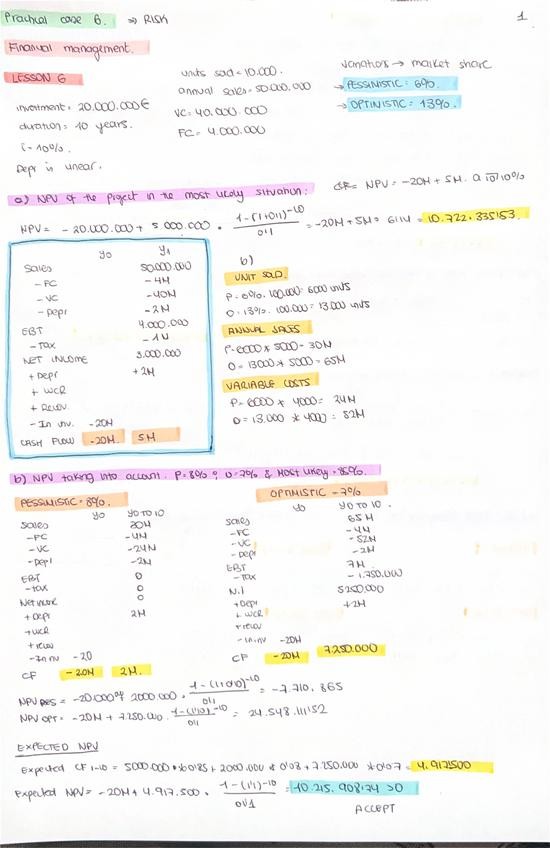 Practical case 6. ⇒ RISK
1
Financial management.
LESSON 6
investment = 20.000.000€
duration = 10 years.
i = 10%.
Depr is linear.
units sold = 10.000.
annual sales = 50.000.000
VC = 40.000.000
FC = 4.000.000
variations → market share
→ PESSIMISTIC = 6%.
→ OPTIMISTIC = 13%.
a) NPV of the project in the most likely situation:
NPV = -20M + 5M. a 10 10%
NPV = - 20.000.000 + 5.000.000 · 1-(1+0'1)^-10 / 0'1 = -20M + 5M · 6'144 = 10.722.835'53.
y0 y1
Sales 50.000.000
- FC -4M
- VC -40M
- Depr -2M
EBT 4.000.000
- Tax - 1M
NET INCOME 3.000.000
+ Depr +2M
+ WCR
+ Recov.
- In inv. -20M
CASH FLOW -20M. 5M
b)
UNIT SOLD.
P = 6%. 100.000 = 6000 units
O = 13%. 100.000 = 13.000 units
ANNUAL SALES
P = 6000 * 5000 = 30M
O = 13000 * 5000 = 65M
VARIABLE COSTS
P = 6000 * 4000 = 24M
O = 13.000 * 4000 = 52M
b) NPV taking into account. P = 8% ; O = 7% & Most likely = 85%.
PESSIMISTIC = 8%.
y0 Y0 TO 10
Sales 30M
- FC -4M
- VC -24M
- Depr -2M
EBT 0
- tax 0
Net income 0
+ Depr 2M
+ WCR
+ recov
- In inv -20
CF -20M 2M.
OPTIMISTIC - 7%
y0 Y0 TO 10.
Sales 65M
- FC -4M
- VC -52M
- Depr -2M
EBT 7M
- Tax - 1.750.000
N.I 5250.000
+ Depr +2M
+ WCR
+ recov
- In inv -20M
CF -20M 7.250.000
NPV PES = -20.000 + 2000.000 · 1-(1+0'10)^-10 / 0'1 = -7.710.865
NPV OPT = -20M + 7.250.000 · 1-(1'10)^-10 / 0'1 = 24.548.111'52
EXPECTED NPV
Expected CF 1-10 = 5000.000 * 0'85 + 2000.000 * 0'08 + 7.250.000 * 0'07 = 4.917.500
Expected NPV = -20M + 4.917.500 · 1-(1'1)^-10 / 0'1 = 10.215.908'74 > 0
ACCEPT